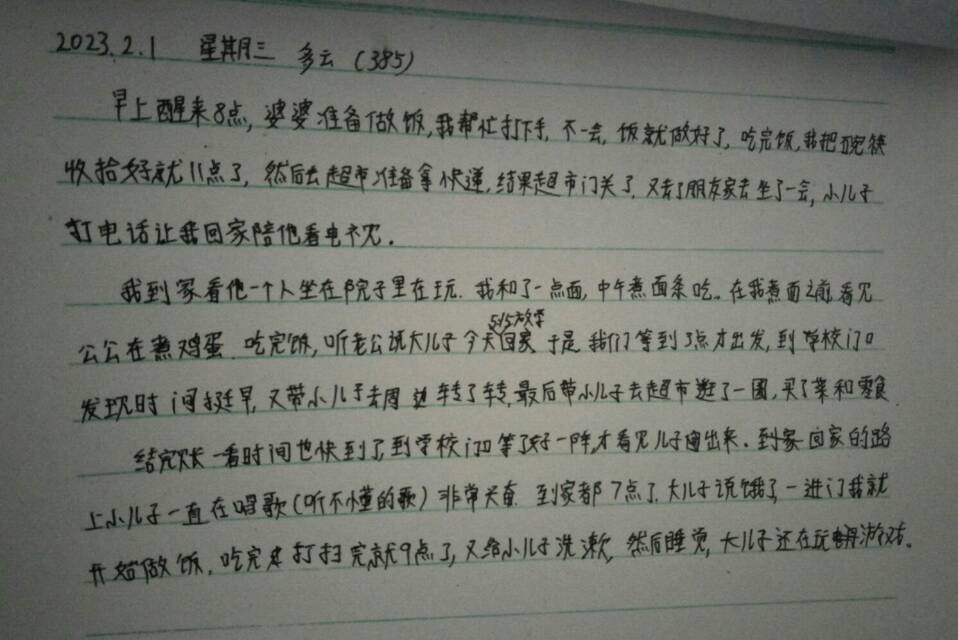 2023.2.1 星期三 多云 (385)
早上醒来8点, 婆婆准备做饭,我帮忙打下手, 不一会, 饭就做好了, 吃完饭,我把碗筷
收拾好就11点了, 然后去超市准备拿快递,结果超市门关了, 又去了朋友家去坐了一会, 小儿子
打电话让我回家陪他看电视.
我到家看他一个人坐在院子里在玩. 我和了一点面, 中午煮面条吃. 在我煮面之前,看见
公公在煮鸡蛋. 吃完饭, 听老公说大儿子今天回家 5:15放学 于是我们等到3点才出发, 到学校门口
发现时间挺早, 又带小儿子去周边转了转, 最后带小儿子去超市逛了一圈, 买了菜和零食.
结完账一看时间也快到了,到学校门口等了好一阵,才看见儿子出来. 到家回家的路
上小儿子一直在唱歌(听不懂的歌) 非常兴奋. 到家都7点了. 大儿子说饿了, 一进门我就
开始做饭, 吃完 打扫完就9点了, 又给小儿子洗漱, 然后睡觉, 大儿子还在玩游戏.